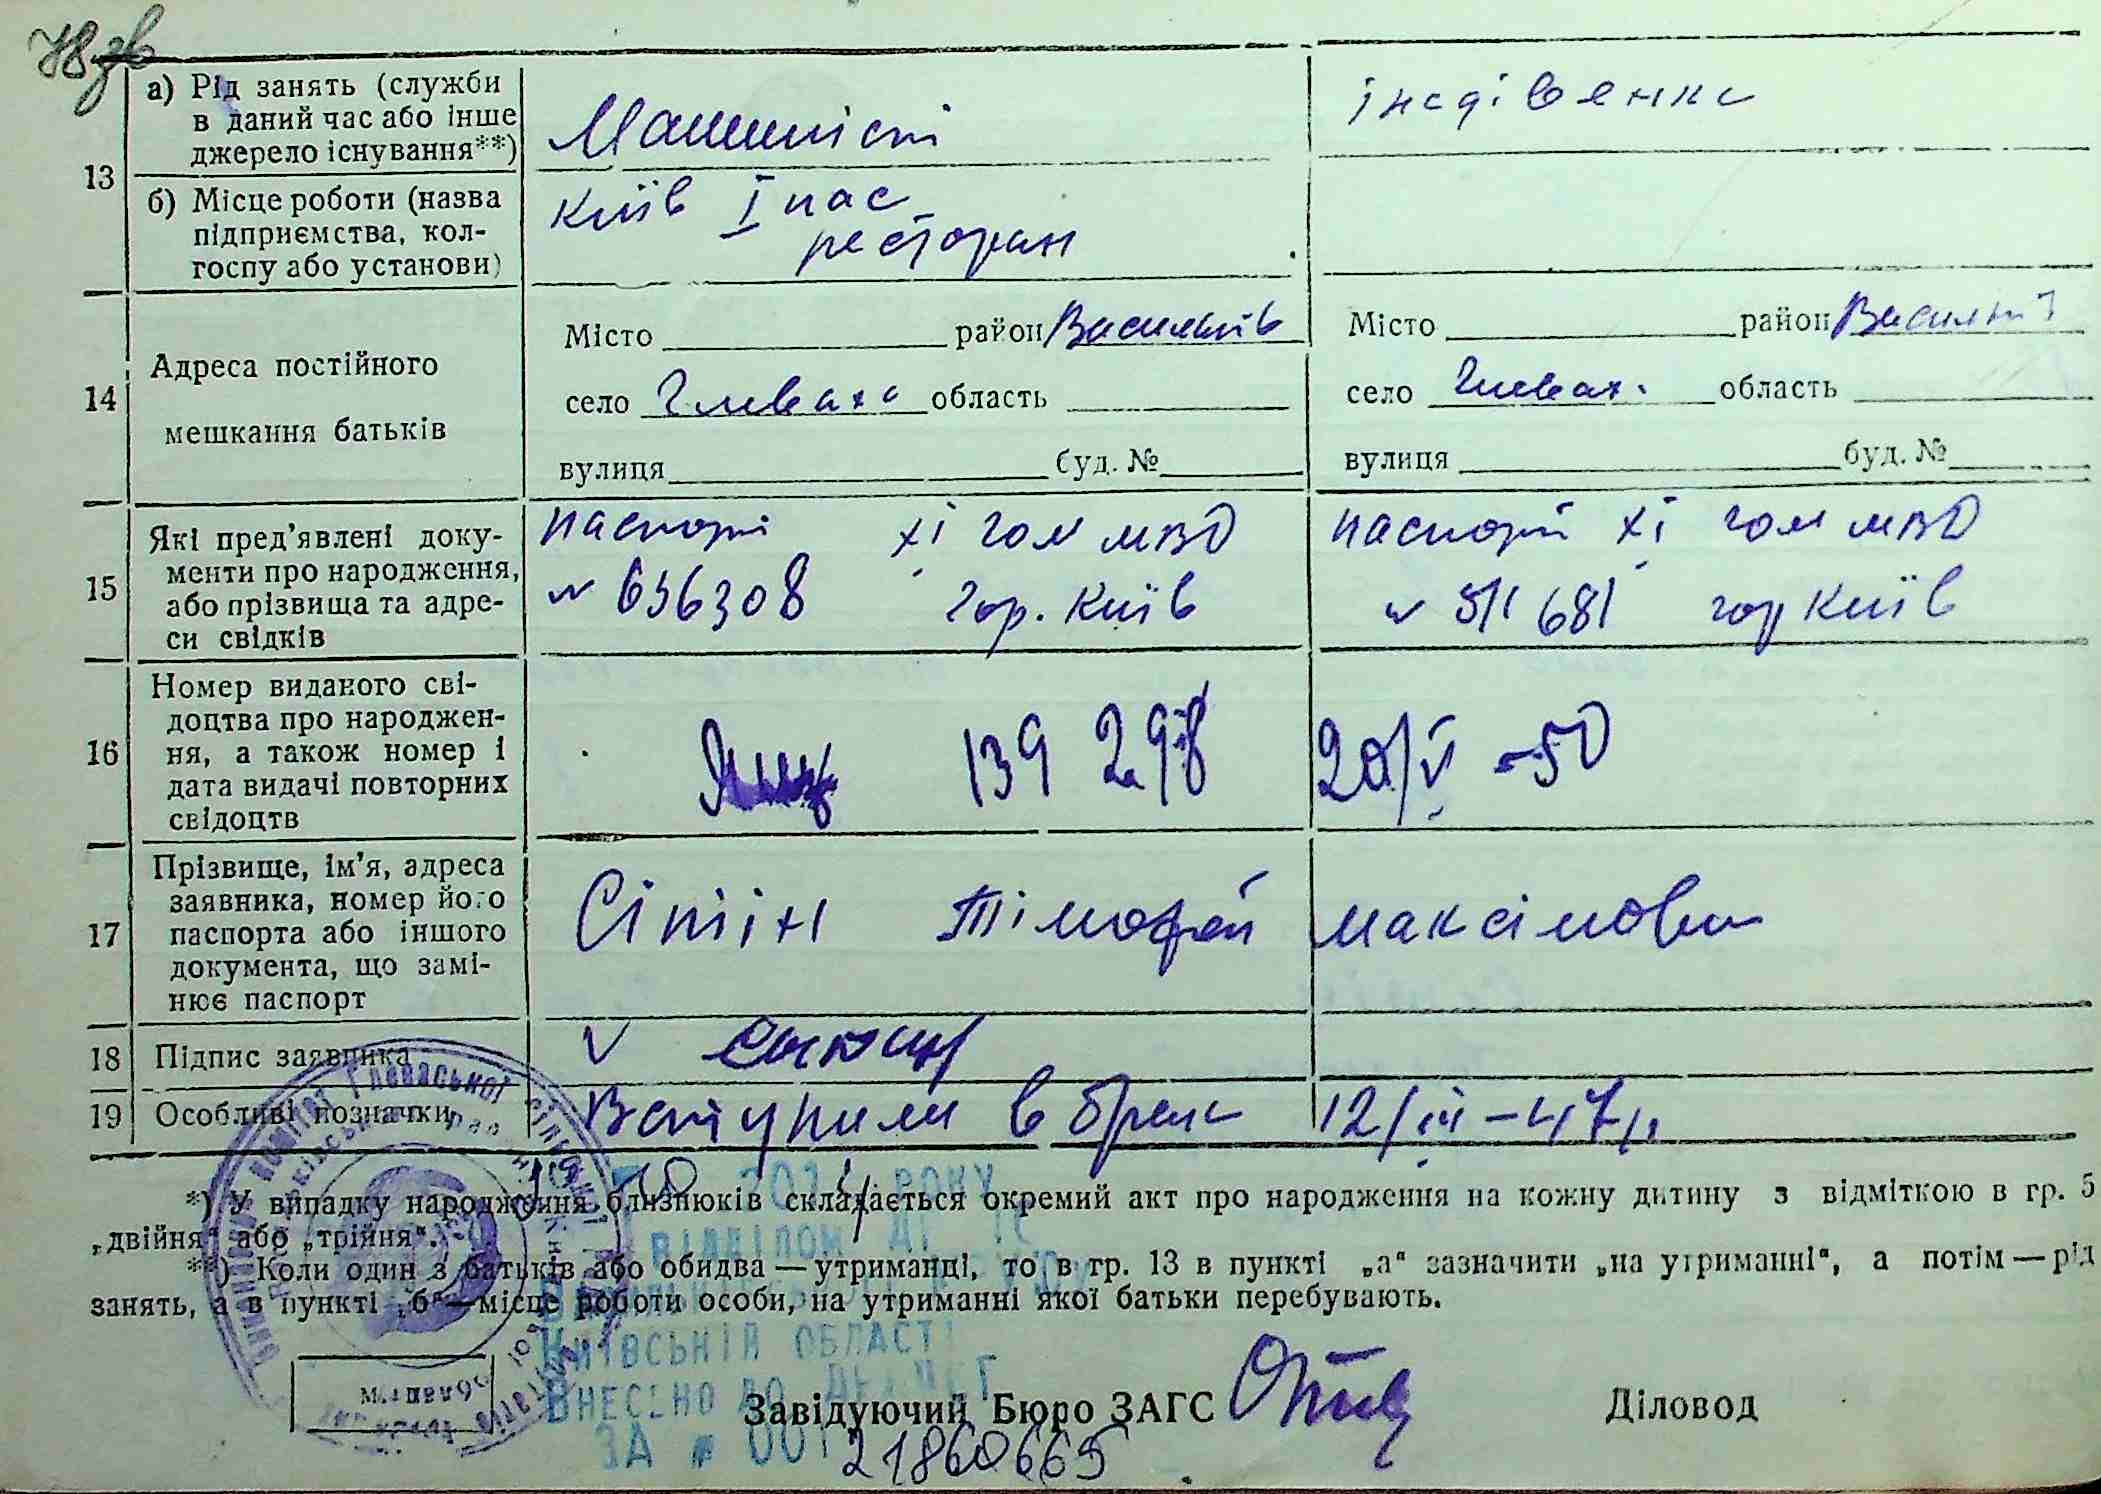 13
а) Рід занять (служби
в даний час або інше
джерело існування**)
Машиніст
б) Місце роботи (назва
підприємства, кол-
госпу або установи)
Київ І пас
ресторан
14
Адреса постійного
мешкання батьків
Місто район Васильків
село Глеваха область
вулиця буд. №
Місто район Васильків
село Глевах. область
вулиця буд. №
15
Які пред'явлені доку-
менти про народження,
або прізвища та адре-
си свідків
паспорт ХІ гом МВД
№ 636308 гор. Київ
паспорт ХІ гом МВД
№ 511681 гор Київ
16
Номер виданого сві-
доцтва про народжен-
ня, а також номер і
дата видачі повторних
свідоцтв
139 298 20/V -50
17
Прізвище, ім'я, адреса
заявника, номер його
паспорта або іншого
документа, що замі-
нює паспорт
Сітін Тімофей Максімович
18
Підпис заявника
V
19
Особливі позначки
Вступили в брак 12/ІІІ-47р.
*) У випадку народження близнюків складається окремий акт про народження на кожну дитину з відміткою в гр. 5
„двійня" або „трійня".
**) Коли один з батьків або обидва — утриманці, то в гр. 13 в пункті „а" зазначити „на утриманні", а потім — рід
занять, а в пункті „б" — місце роботи особи, на утриманні якої батьки перебувають.
РОКУ
ВІДДІЛОМ
КИЇВСЬКІЙ ОБЛАСТІ
ВНЕСЕНО ДО
Завідуючий Бюро ЗАГС
Діловод
ЗА № 001
21860665